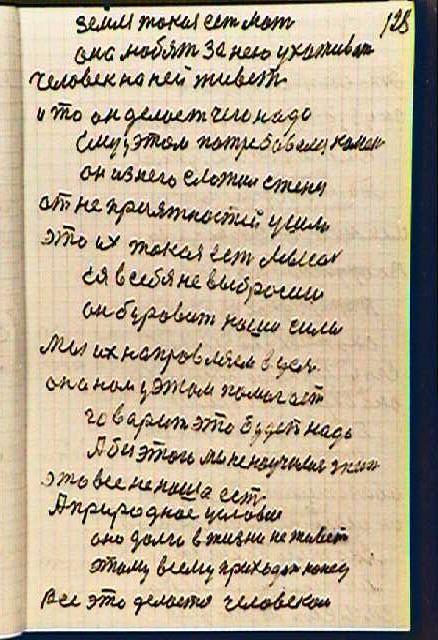 128
земля такая ест мат
она любят за нею ухаживат
человек на ней живет
и то он делает чего надо
ему, этом потребовался камен
он из него сложил стены
от не приятностей ушли
это их такая ест
ся в себя не выбросиш
он бироват наши сили
мы их направляем в дел
она нам у этом помогает
говарит это будет надо
А без этого мы не научимся
это все не наша ест
А природное условие
оно долго в жизни не живет
этому всему приходит конец
Все это делается человеком